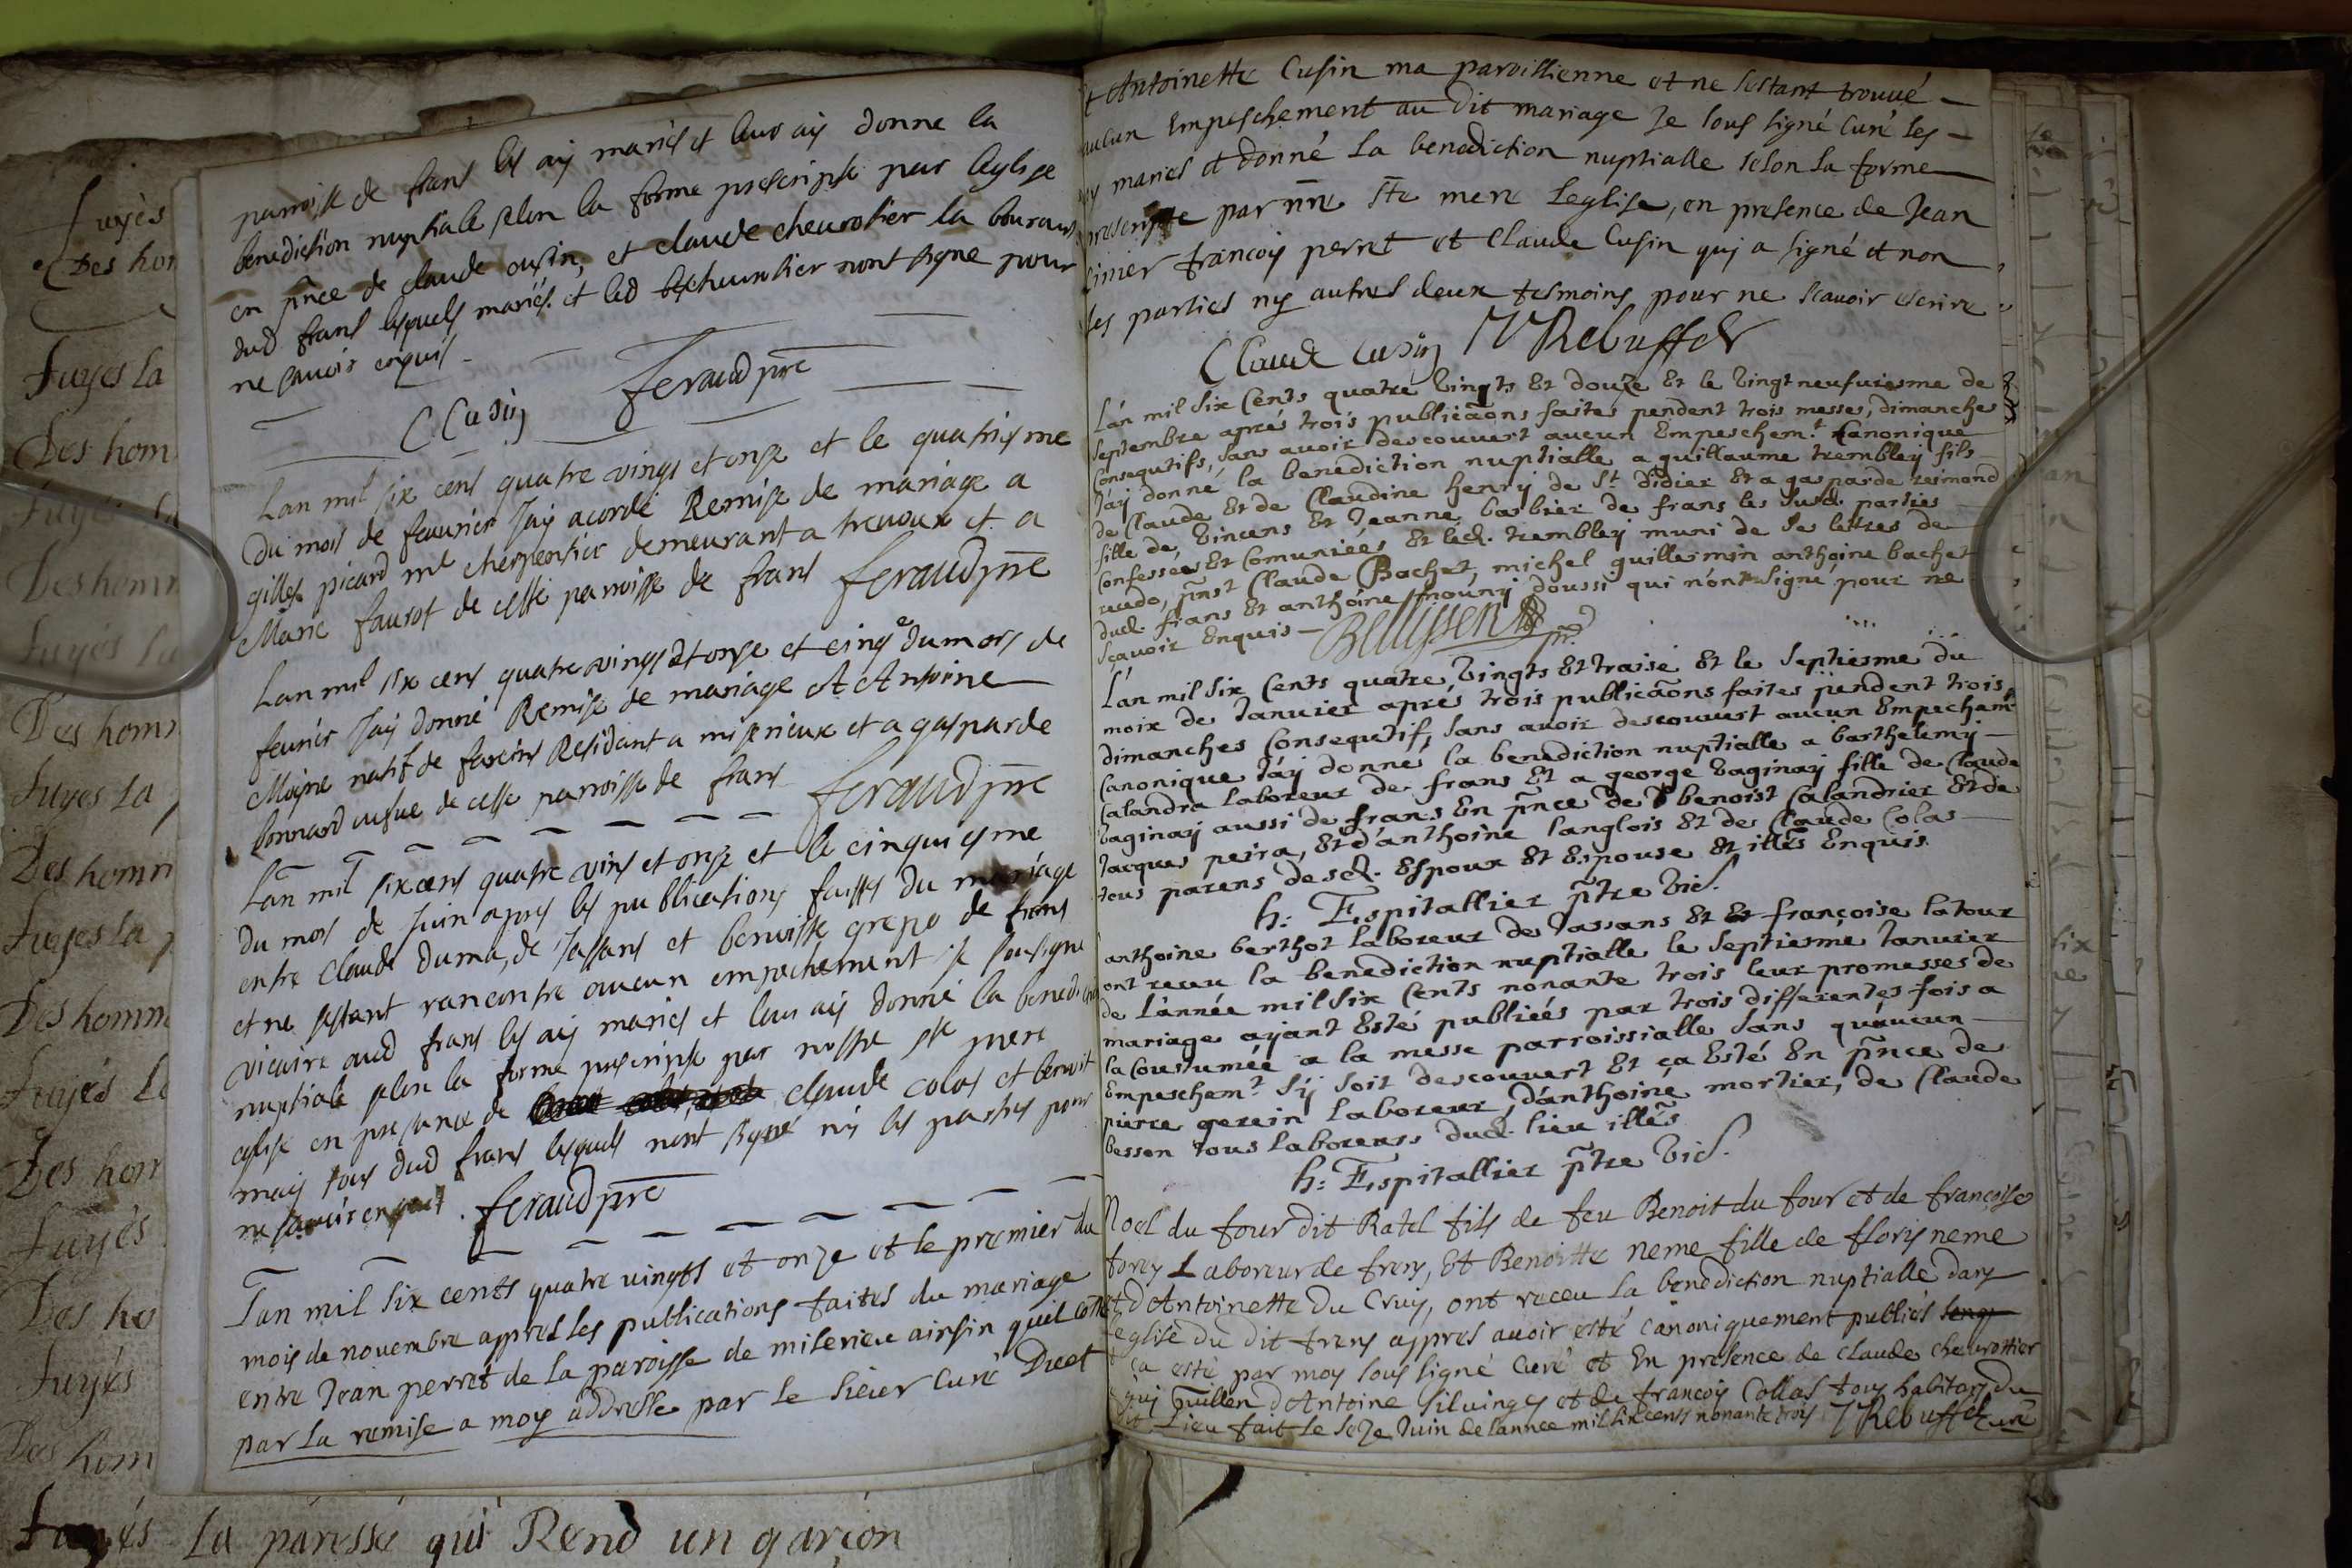 parroisse de frans les aij mariés et leur aij donne la
benediction nuptiale selon la forme prescripte par leglise
en pñce de claude cusin, et claude cheurotier la bourans
dud frans lesquels mariés et led cheurotier nont signe pour
ne sauoir enquis
C Cusin feraud pre
Lan mil six cens quatre vings et onze et le quatriyme
du mois de feuurier Jaij acordé Remise de mariage a
gilles picard me cherpentier demeurant a treuoux et a
Marie faurot de cette parroisse de frans feraud pre
Lan mil six cens quatre vings et onze et cinqe du mois de
feurier Jaij donné Remise de mariage A Antoine
Moijne natif de fareins Residant a miserieux et a gasparde
bonnard vefue de cette parroisse de frans feraud pre
Lan mil six cens quatre vins et onze et le cinquiyme
du mois de Juin apres les publications faittes du mariage
entre claude duma, de Jassans et benoitte grepo de frans
et ne sestant rancontre aucun empechement je soussigne
vicaire aud frans les aij mariés et leur aij donné la benedi
nuptiale selon la forme prescripte par nostre ste mere
eglise en presance de claude colas et benoit
maij tous dud frans lesquels nont signé nij les parties pour
ne sauoir enquit. feraud pre
Lan mil six cents quatre vingts et onze et le premier du
mois de nouembre appres les publications faites du mariage
entre Jean perret de la paroisse de miserieu ainsin quil
par la remise a moy addressée par le sieur curé Duet
et Antoinette Cusin ma paroissienne et ne sestant trouué
aucun Empeschement au dit mariage Je sous signé Curé les
aij mariés et donné La benediction nuptialle selon la forme
prescripte par nre Ste mere Leglise, en presence de Jean
francoij perret et Claude Cusin quj a signé et non
les parties nij autres deux tesmoins pour ne scauoir escrire
Claude Cusin Rebuffet
L'an mil six Cents quatre Vingts Et douze Et le Vingt neufuiesme de
Septembre aprés trois publicãons faites pendent trois messes, dimanches
Consequtifs, sans auoir descouuert aucun Empeschem.t Canonique
J'aij donné la benediction nuptialle a guillaume trembley fils
de Claude Et de Claudine henrij de St didier Et a gasparde resimond
fille de, Vincens Et Jeanne barbier de frans les susd. parties
Confessées Et Comuniées Et led. trembley muni de ses lettres de
recedo, pñst Claude Bachet, michel guillermin anthoine bachet
dud. frans Et anthoine mounij doussi qui n'ont signé, pour ne
scauoir Enquis Bellyssen pr.
L'an mil six Cents quatre Vingts Et traise Et le Septiesme du
moix de Januier aprés trois publicãons faites pendent trois
dimanches Consequtif, sans auoir descouuert aucun Empecham.t
Canonique J'aij donné la benediction nuptialle a barthelemij
Calandra Laboreur de frans Et a george Vaginaij fille de Claude
Vaginaij aussi de frans En pñce de benoist Calandrier Et de
Jacques peira, Et d'anthoine langlois Et de Claude Colas
tous parens desd. Espoux Et Espouse Et illés Enquis
h: Espitallier ptre Vic.
anthoine berthot laboreur de Jassans Et Et françoise latour
ont receu la benediction nuptialle le Septiesme Januier
de L'année mil six Cents nonante trois leur promesses de
mariage aijant Esté publiéés par trois differentes fois a
la Coustumée a la messe parroissialle sans qu'aucun
Empeschem.t s'ij soit descouuert Et ça Esté En pñce de
pierre gerein Laboreur, d'anthoine mortier, de Claude
besson tous laboreurs dud. lieu illés
h: Espitallier ptre Vic.
Noel du four dit Ratel fils de feu Benoit du four et de françoise
forey Laboreur de frens, Et Benoitte neme fille de florij neme
et dAntoinette du Cruij, ont receu la benediction nuptialle dans
leglise du dit frens appres auoir esté canoniquement publiés
ça esté par moy sous signé Curé et En presence de claude cheurottier
guij guillen dAntoine siluinges et de francoij Collas tous habitans du
dit Lieu fait le seze Juin de lannee mil six cents nonante trois Rebuffet curé
fuyés La paressé qui Rend un garçon